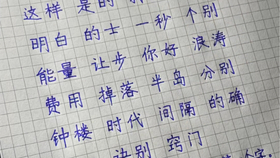 这样 是的
明白 的士 一秒 个别
能量 让步 你好 浪涛
费用 掉落 半岛 分别
钟楼 时代 间隔 的确
诀别 窍门